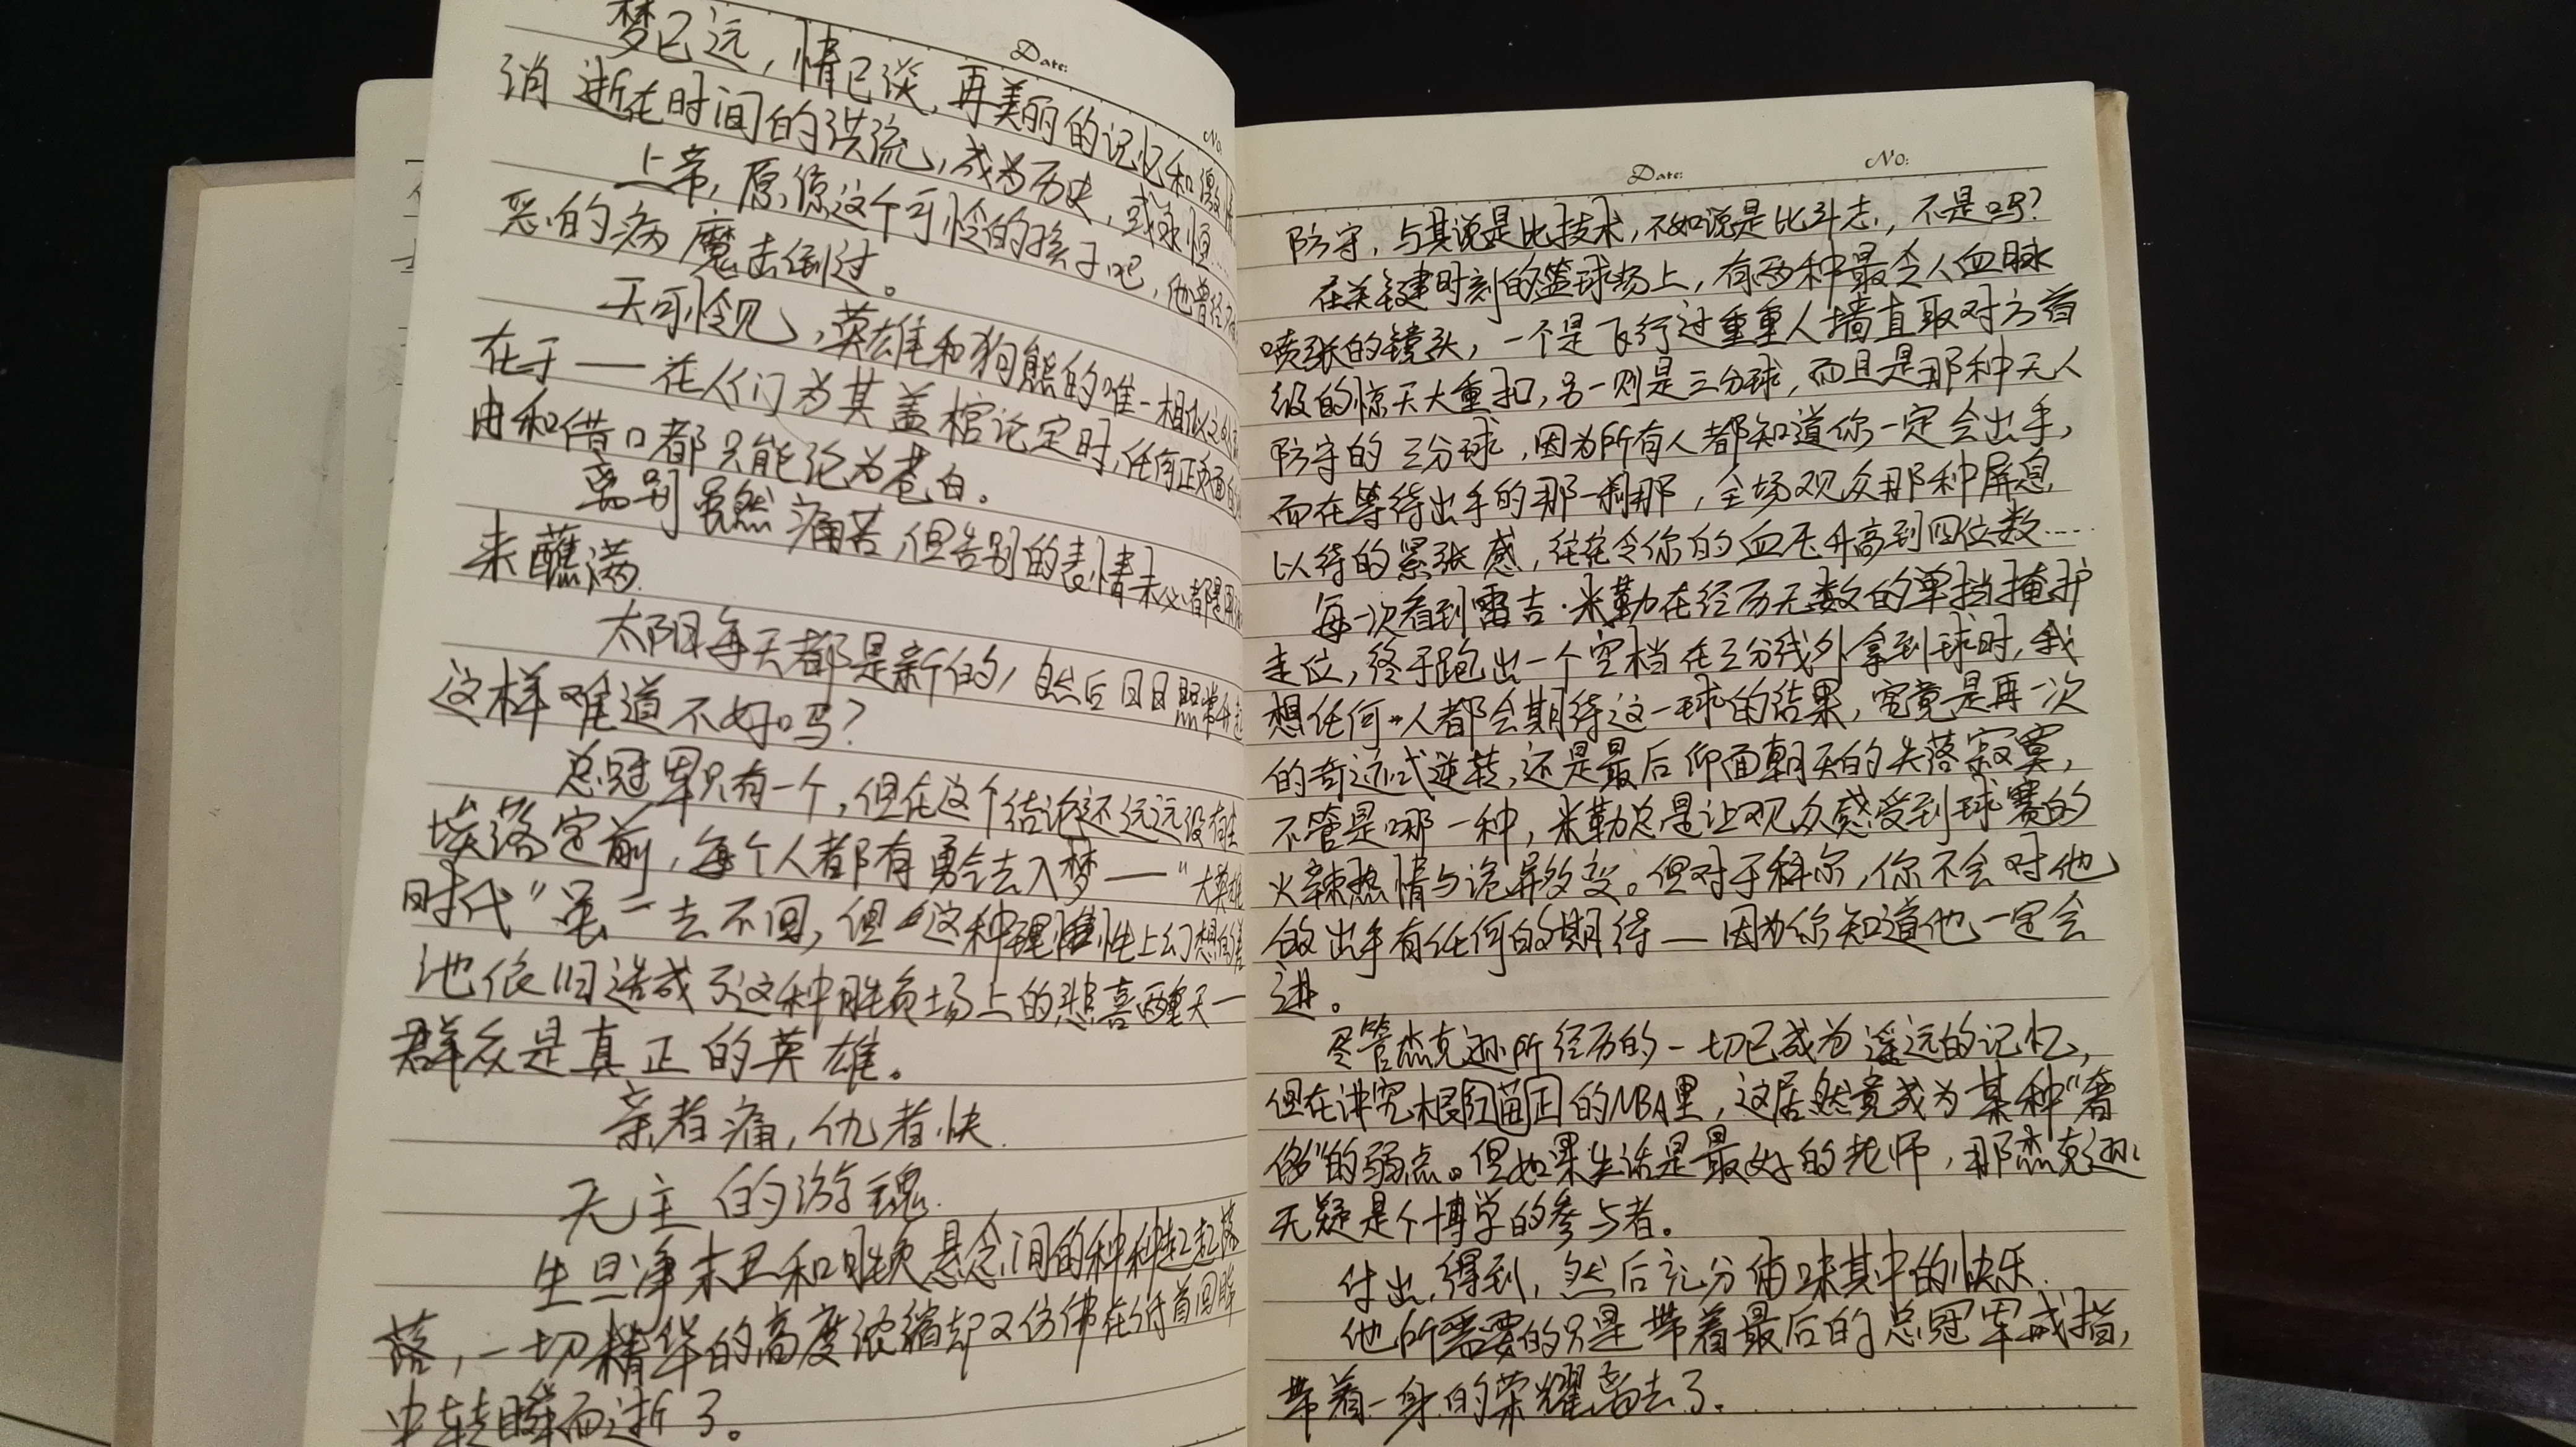 Date:
No.
梦已远，情已淡，再美丽的记忆和激情
消逝在时间的洪流，成为历史，或永恒……
上帝，原谅这个可怜的孩子吧，他曾经
恶的病魔击倒过。
天可怜见，英雄和狗熊的唯一相似之处
在于——在人们为其盖棺论定时，任何正负面的
由和借口都只能沦为苍白。
离别虽然痛苦，但告别的表情未必都是用
来蘸满.
太阳每天都是新的，自然后日日照常升起
这样难道不好吗？
总冠军只有一个，但在这个结论还远远没有
埃落定前，每个人都有勇气去入梦——“大英雄
时代”虽一去不回，但这种理性上幻想的
池依旧造成了这种胜负场上的悲喜两重天—
群众是真正的英雄。
亲者痛，仇者快.
无主的游魂.
生旦净末丑和胜负悬念间的种种起起落
落，一切精华的高度浓缩却又仿佛在俯首回眸
中转瞬而逝了。
Date:
No:
防守，与其说是比技术，不如说是比斗志，不是吗？
在关键时刻的篮球场上，有两种最令人血脉
喷张的镜头，一个是飞行过重重人墙直取对方首
级的惊天大重扣，另一则是三分球，而且是那种无人
防守的三分球，因为所有人都知道你一定会出手，
而在等待出手的那一刹那，全场观众那种屏息
以待的紧张感，往往令你的血压升高到四位数……
每一次看到雷吉·米勒在经历无数的单挡掩护
走位，终于跑出一个空档在三分线外拿到球时，我
想任何一人都会期待这一球的结果，究竟是再一次
的奇迹式逆转，还是最后仰面朝天的失落寂寞，
不管是哪一种，米勒总是让观众感受到球赛的
火辣热情与诡异多变。但对于科尔，你不会对他
的出手有任何的期待——因为你知道他一定会
进。
尽管杰克逊所经历的一切已成为遥远的记忆，
但在讲究根红苗正的NBA里，这居然竟成为某种“奢
侈”的弱点。但如果生活是最好的老师，那杰克逊
无疑是个博学的参与者。
付出，得到，然后充分俑味其中的快乐.
他所需要的只是带着最后的总冠军戒指，
带着一身的荣耀离去了.